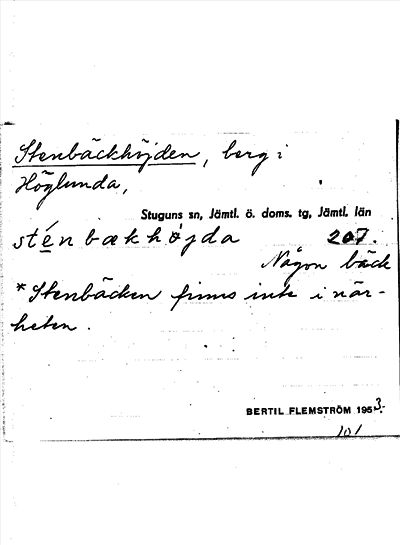 Stenbäckhöjden, berg i
Höglunda,
Stuguns sn, Jämtl. ö. doms. tg, Jämtl. län
sténbækhöjda 207.
Någon bäck
*Stenbäcken finns inte i när-
heten.
BERTIL FLEMSTRÖM 1953.
101